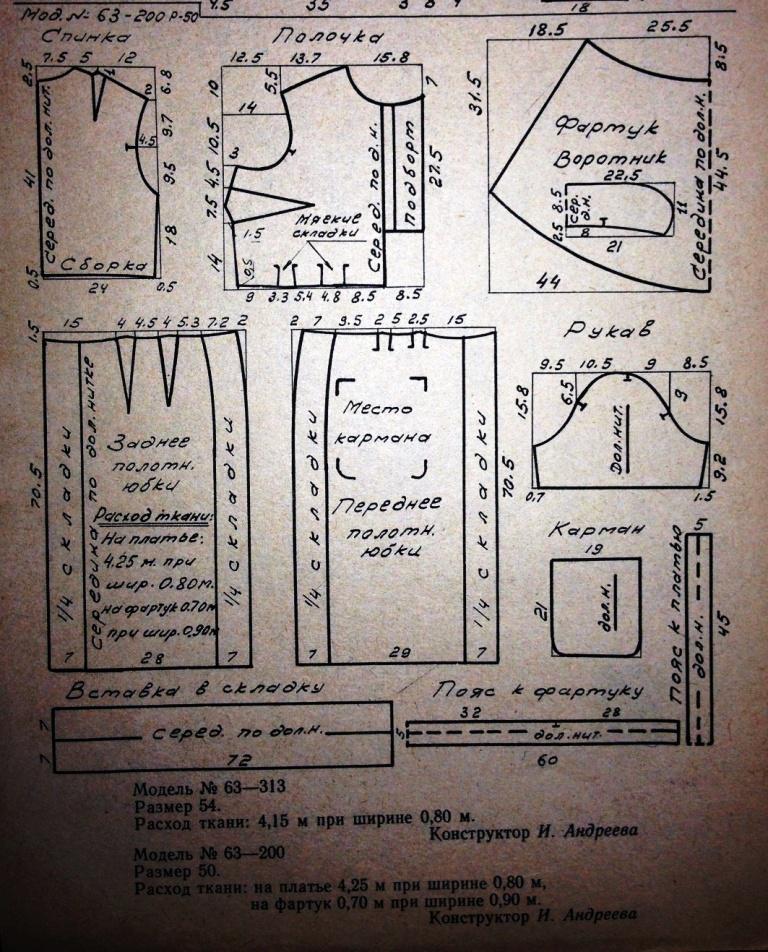 4.5 35 3 8 4 18
Мод. №: 63-200 Р-50
Спинка
7.5 5 12
2.5
2
6.8
9.7
4.5
9.5
18
41
серед. по дол. нит.
Сборка
0.5 24 0.5
Полочка
12.5 13.7 15.8
10 5.5 7
14
10.5
3
4.5
7.5
1.5
14
0.5
Мягкие
складки
серед. по д.н.
подборт
27.5
9 3.3 5.4 4.8 8.5 8.5
18.5 25.5
31.5
8.5
Фартук
Воротник
22,5
8.5
сер.
д.н.
11
2.5
8
21
44
Середина по дол.н.
44.5
1.5 15 4 4.5 4 5.3 7.2 2
70.5
1/4 складки
середина по дол. нитке
Заднее
полотн.
юбки
Расход ткани:
На платье:
4.25 м. при
шир. 0.80м.
на фартук 0.70м
при шир. 0,90м
1/4 складки
7 28 7
2 7 9.5 2 5 2.5 15
1/4 складки
Место
кармана
Переднее
полотн.
юбки
1/4 складки
70.5
7 29 7
Рукав
9.5 10.5 9 8.5
15.8
6.5
9
15.8
Дол.нит.
9.2
0.7 1.5
Карман
19
21
дол.н.
Пояс к платью
5
дол.н.
45
Вставка в складку
7
7
серед. по дол.н.
72
Пояс к фартуку
32 28
5
дол.нит.
60
Модель № 63—313
Размер 54.
Расход ткани: 4,15 м при ширине 0,80 м.
Конструктор И. Андреева
Модель № 63—200
Размер 50.
Расход ткани: на платье 4,25 м при ширине 0,80 м,
на фартук 0,70 м при ширине 0,90 м.
Конструктор И. Андреева